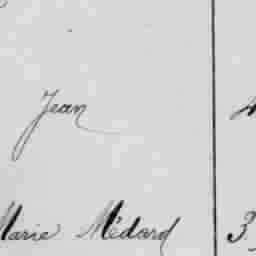 Jean
Marie Médard 3